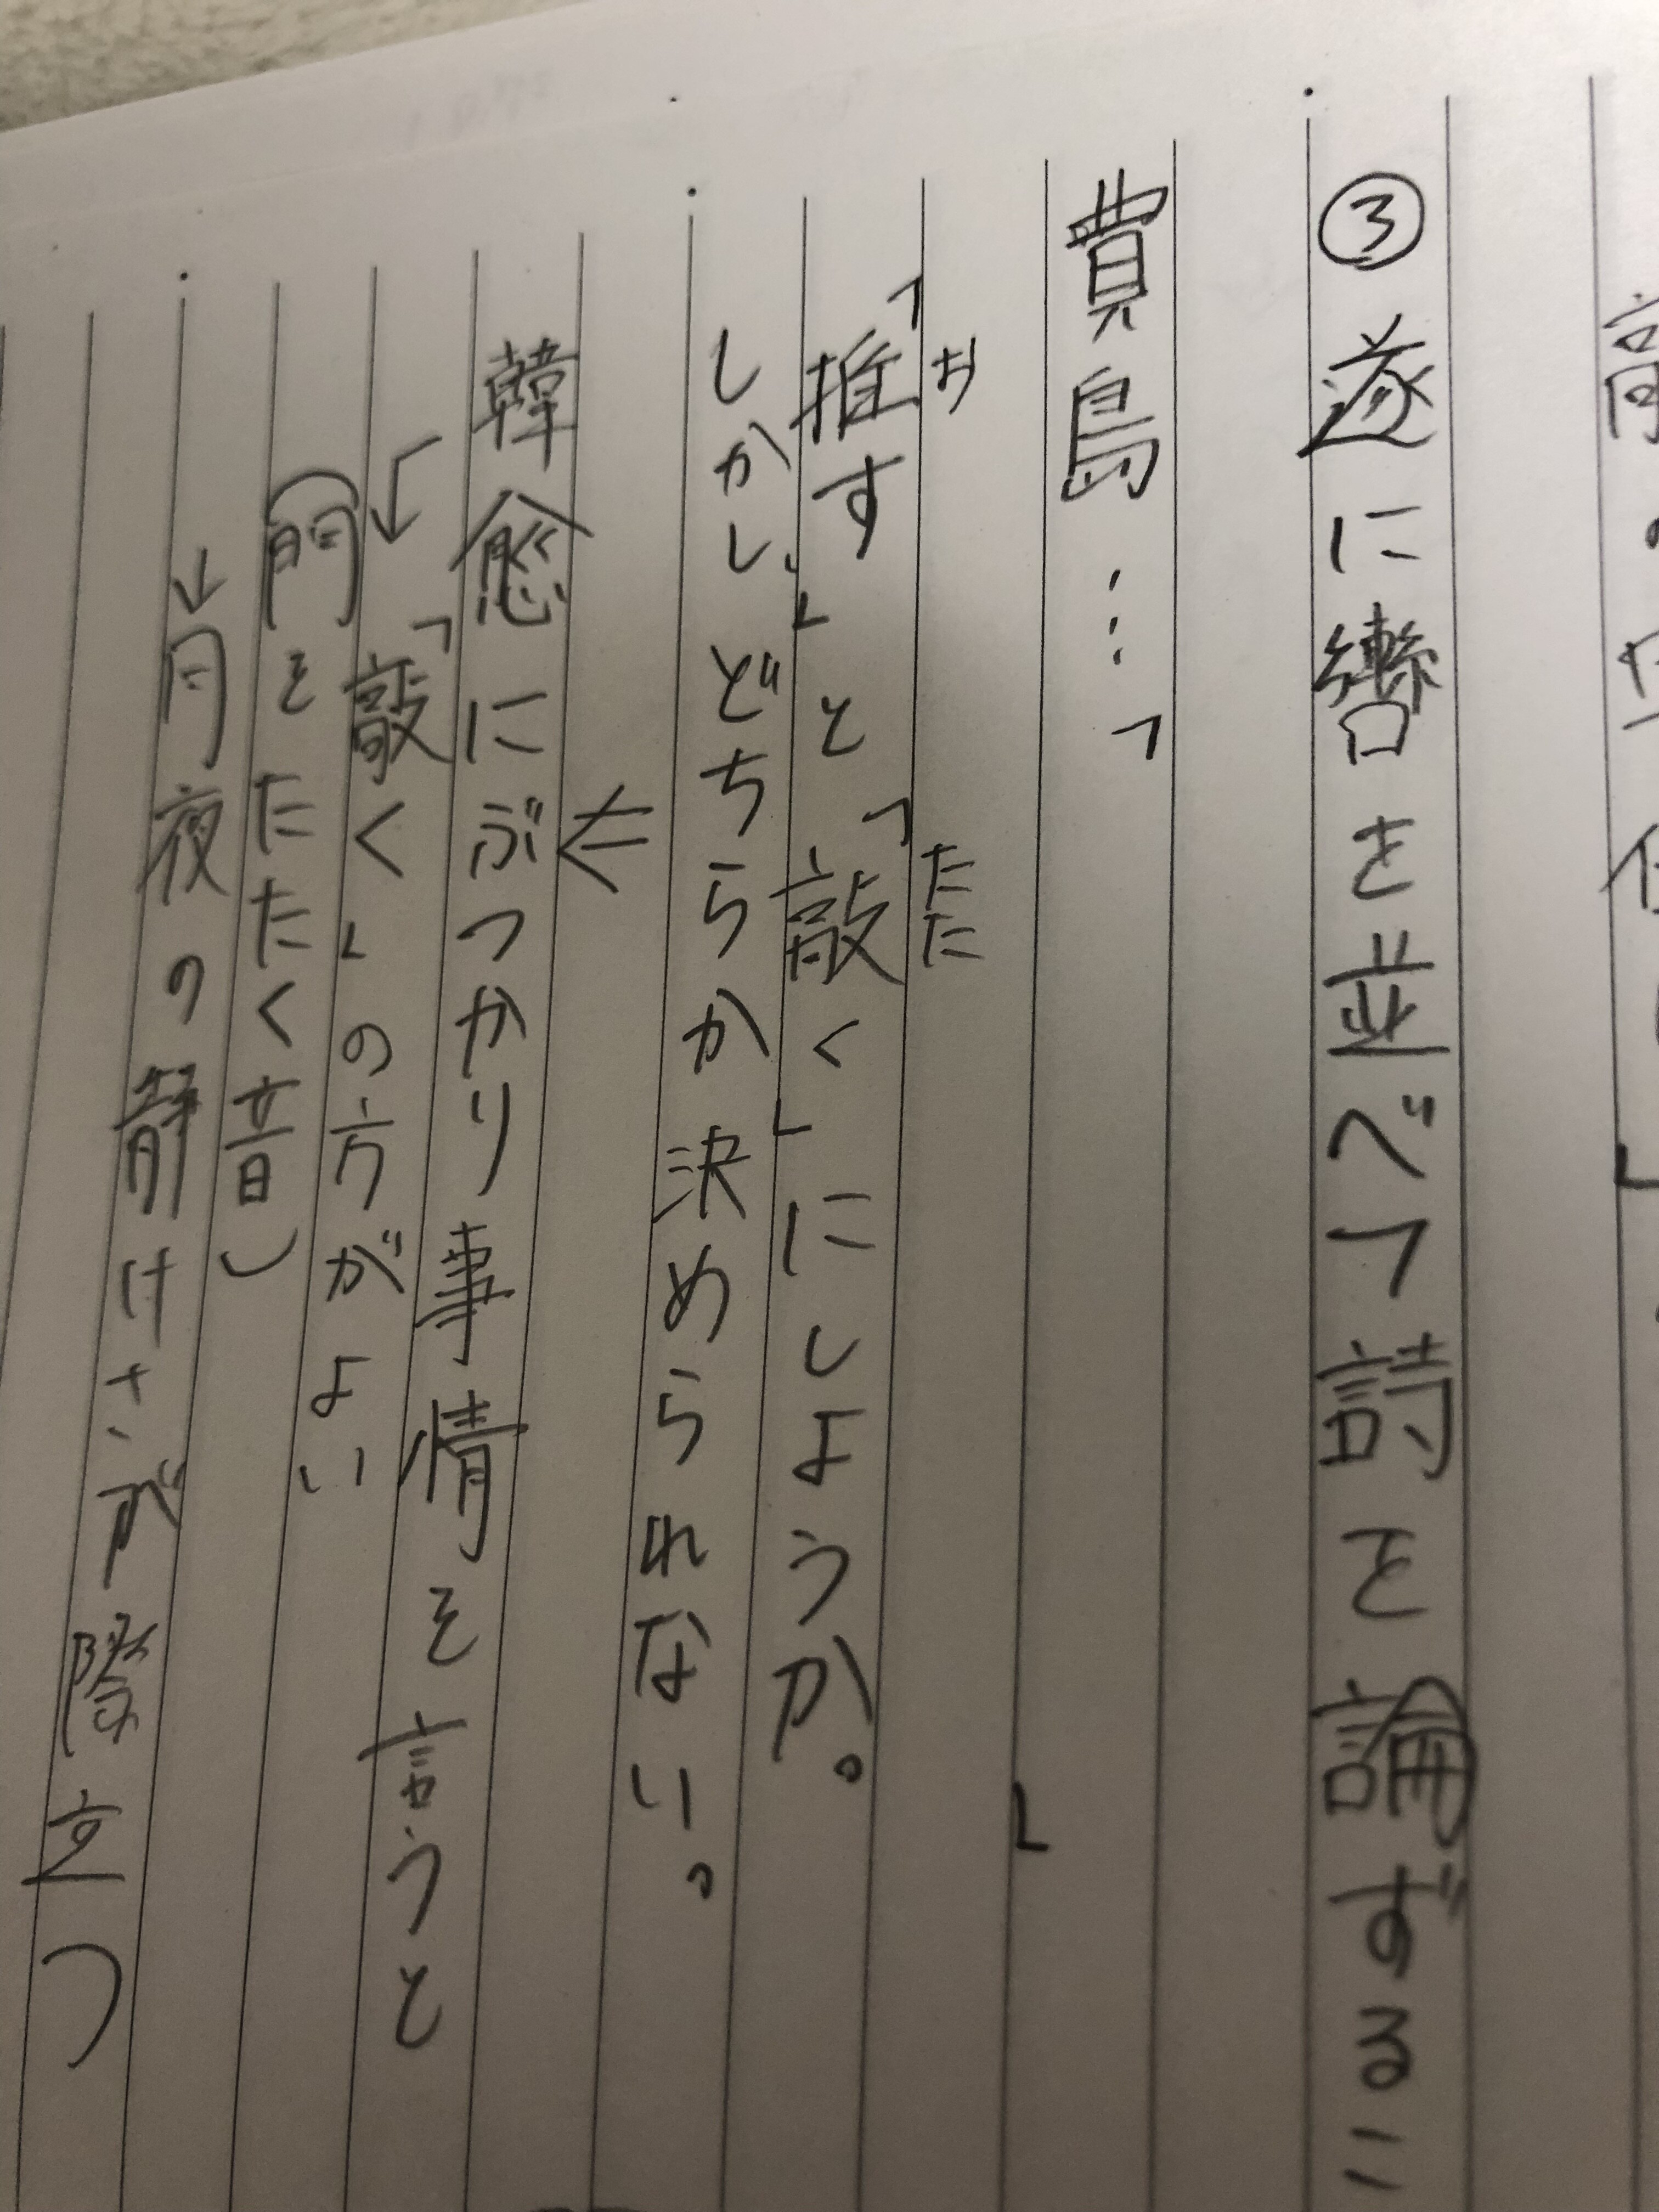 ③遂に轡を並べて詩を論ずるこ
賈島…「　　　　」
「推す」と「敲く」にしようか。
お　たた
しかし、どちらか決められない。
⇓
韓愈にぶつかり事情を言うと
↓「敲く」の方がよい
(門をたたく音)
→月夜の静けさが際立つ